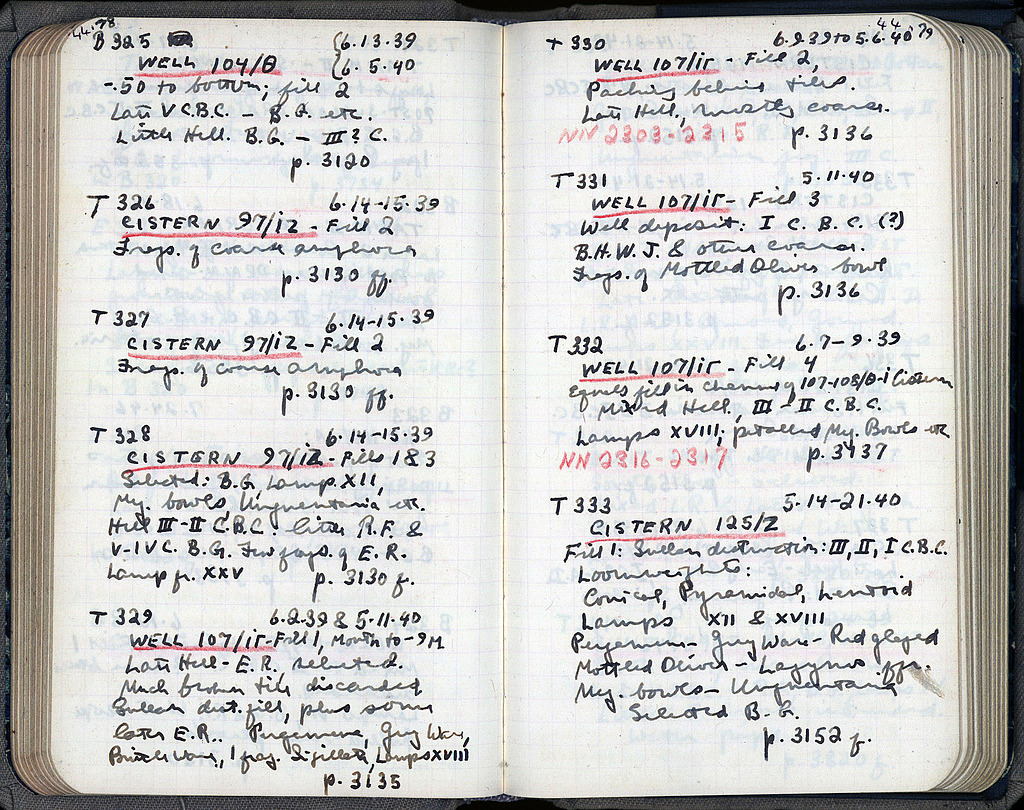 44.78
B 325 {6.13.39
WELL 104/Θ {6.5.40
-.50 to bottom; fill 2
Late V C.B.C. - B.G. etc.
Little Hell. B.G. - III? C.
p. 3120
T 326 6.14-15.39
CISTERN 97/ΙΖ - Fill 2
Frags. of coarse amphora
p. 3130 ff.
T 327 6.14-15.39
CISTERN 97/ΙΖ - Fill 2
Frags. of coarse amphora
p. 3130 ff.
T 328 6.14-15.39
CISTERN 97/ΙΖ - Fills 1&3
Selected: B.G. Lamp XII,
My. bowls, Unguentaria etc.
Hell III-II C.B.C. Little R.F. &
V-IV C. B.G. Few frags. of E.R.
Lamp fr. XXV p. 3130 f.
T 329 6.2.39 & 5.11.40
WELL 107/ΙΓ - Fill 1, Mouth to -9M
Late Hell - E.R. selected.
Much broken tile discarded
Sullan dist. fill, plus some
later E.R.. Pergamene, Gray Ware,
1 frag. Sigillata, Lamps XVIII
p. 3135
44.79
T 330 6.9.39 to 5.6.40
WELL 107/ΙΓ - Fill 2,
Packing behind tiles.
Late Hell., mostly coarse.
NN 2303-2315 p. 3136
T 331 5.11.40
WELL 107/ΙΓ - Fill 3
Well deposit: I C.B.C. (?)
B.H.W.J. & other coarse.
Frags. of Mottled Olives bowl
p. 3136
T 332 6.7-9.39
WELL 107/ΙΓ - Fill 4
Equals fill in channel of 107-108/Θ-Ι Cistern
Mixed Hell., III-II C.B.C.
Lamps XVIII; petalled My. Bowls etc
NN 2316-2317 p. 3137
T 333 5.14-21.40
CISTERN 125/Ζ
Fill 1: Sullan destruction: III, II, I C.B.C.
Loomweights:
Conical, Pyramidal, Lentoid
Lamps XII & XVIII
Pergamene - Gray Ware - Red glazed
Mottled Olives - Lagynos ffr.
My. bowls - Unguentaria
Selected B.G.
p. 3152 f.